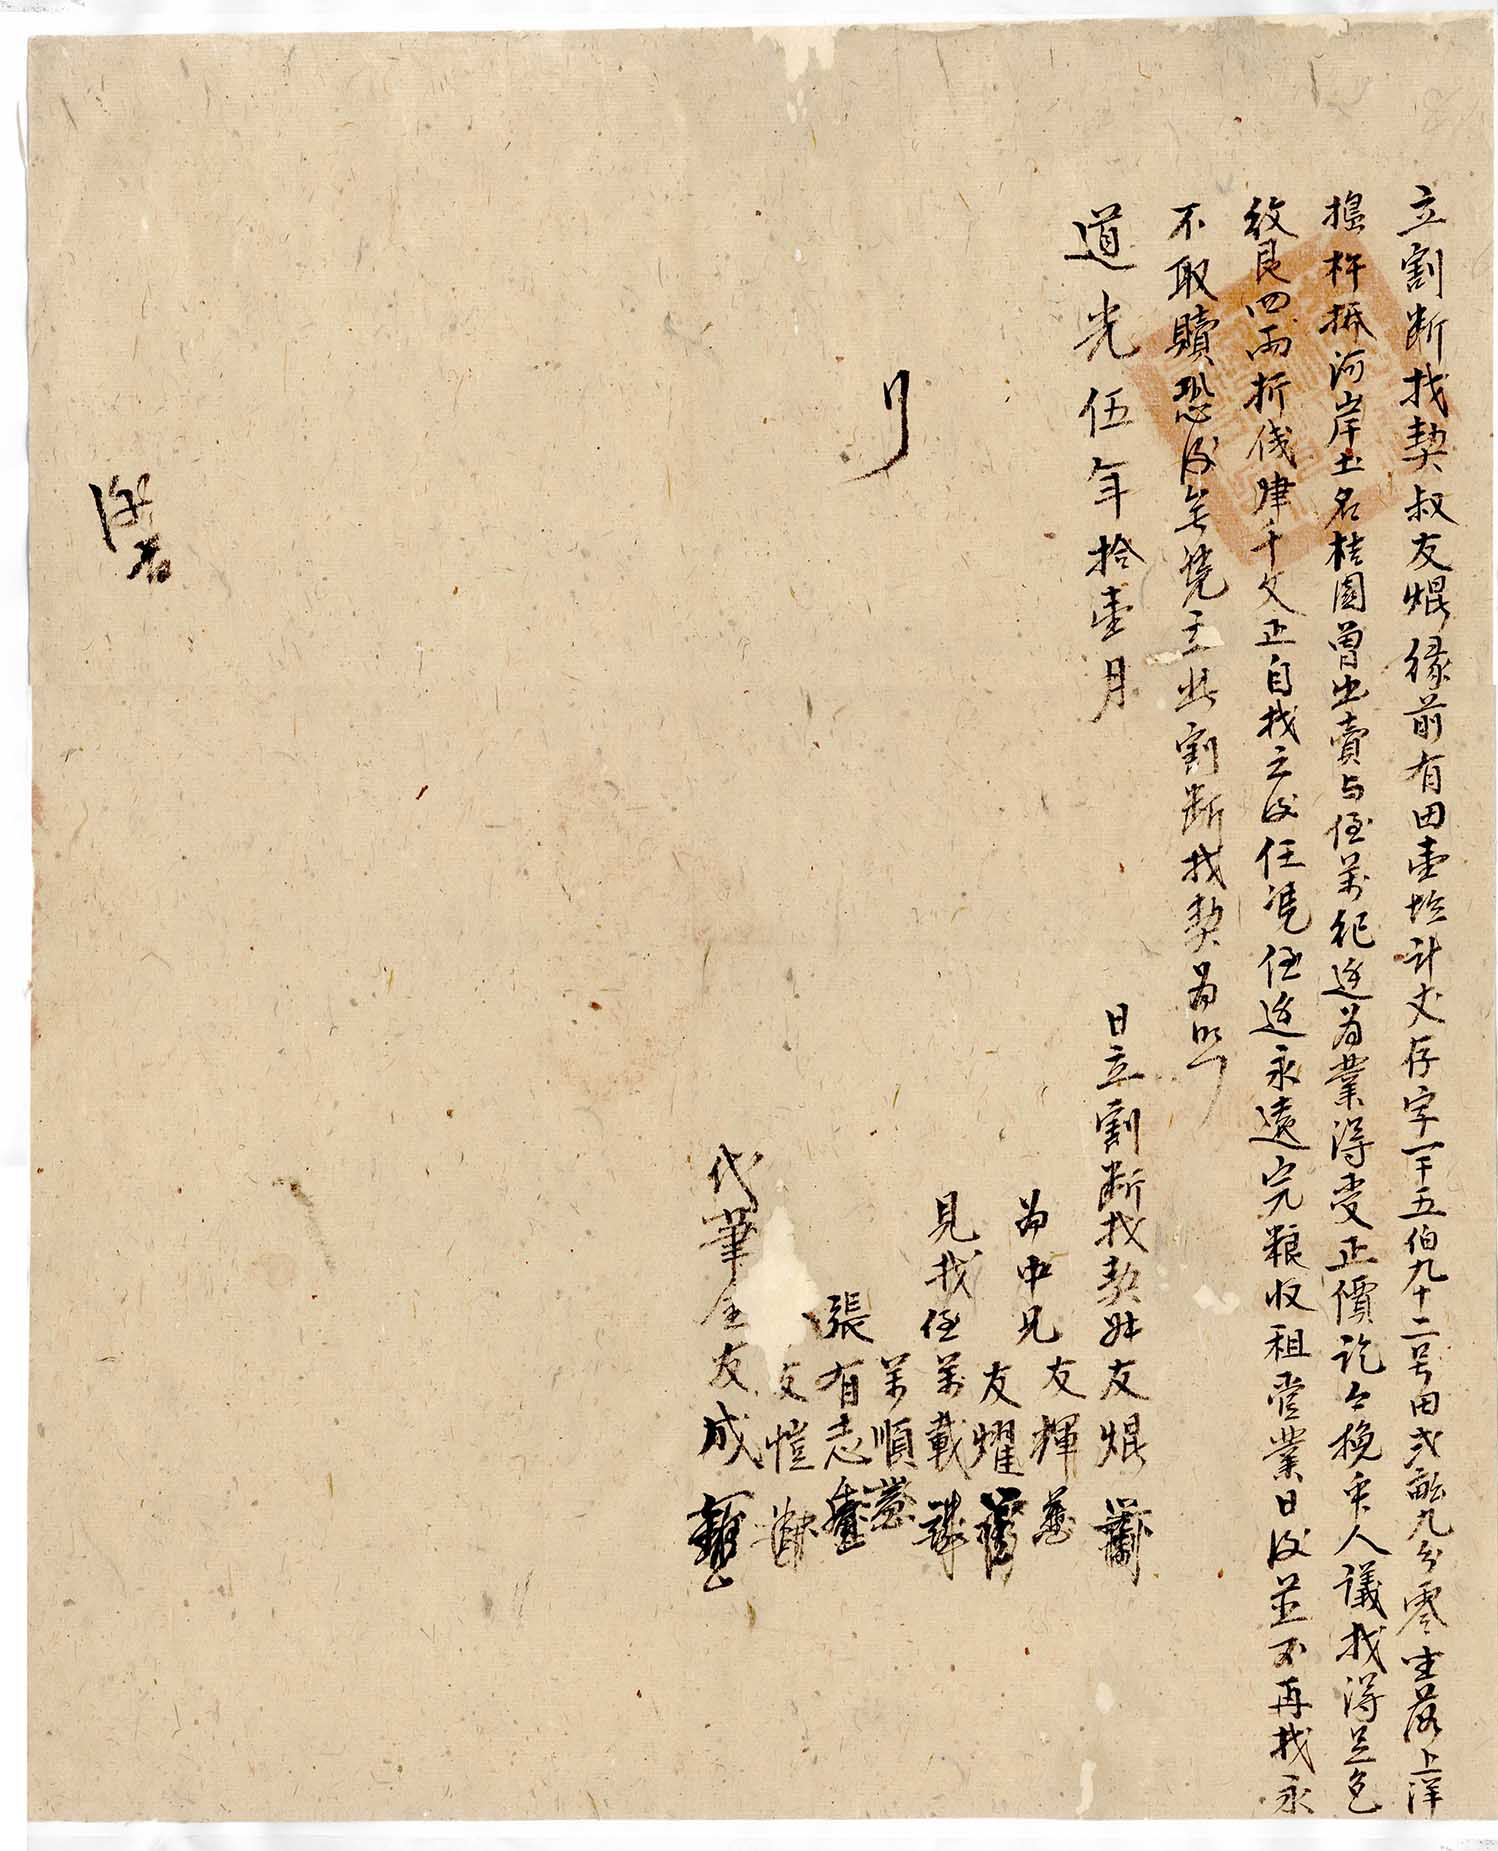 立割断找契叔友焜緣前有田壹坵計丈存字一千五伯九十二号田弍畝九分零坐落上洋
杵抵河岸土名桂園曾出賣与侄萬祀邊為業得受正價訖今挽中人議找得足色
紋艮四兩折伐肆千文正自找之後任凴侄邊永遠完粮收租啻業日後並不再找永
不取贖恐後無凴立此割断找契為照
道光伍年拾壹月
日立割断找契叔友焜
為中兄友輝
友燿
見找侄萬載
萬順
張有志
友愷
代筆仝友成